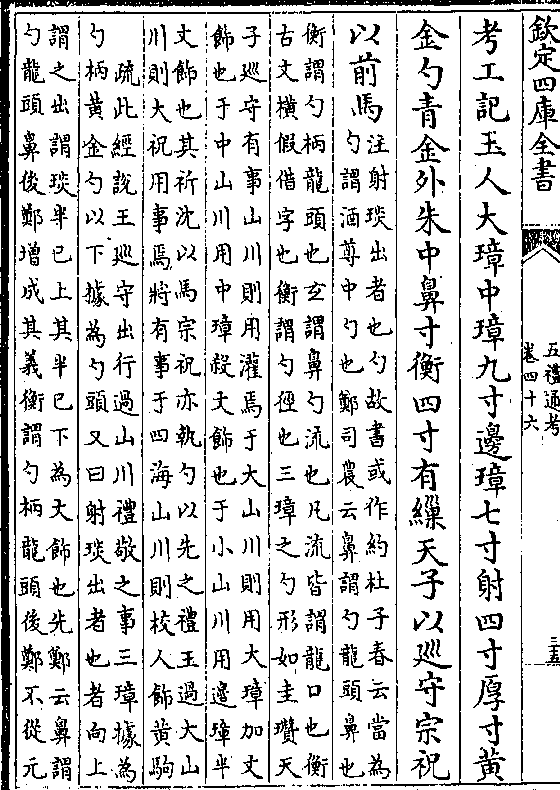 欽定四庫全書
五禮通考
卷四十六
三五
考工記玉人大璋中璋九寸邊璋七寸射四寸厚寸黃
金勺青金外朱中鼻寸衡四寸有繅天子以巡守宗祝
以前馬
注射琰出者也勺故書或作約杜子春云當為
勺謂酒尊中勺也鄭司農云鼻謂勺龍頭鼻也
衡謂勺柄龍頭也玄謂鼻勺流也凡流皆謂龍口也衡
古文橫假借字也衡謂勺徑也三璋之勺形如圭瓚天
子巡守有事山川則用灌焉于大山川則用大璋加文
飾也于中山川用中璋殺文飾也于小山川用邊璋半
文飾也其祈沈以馬宗祝亦執勺以先之禮王過大山
川則大祝用事焉將有事于四海山川則校人飾黃駒
疏此經說王巡守出行過山川禮敬之事三璋據為
勺柄黃金勺以下據為勺頭又曰射琰出者也者向上
謂之出謂琰半已上其半已下為文飾也先鄭云鼻謂
勺龍頭鼻後鄭增成其義衡謂勺柄龍頭後鄭不從元